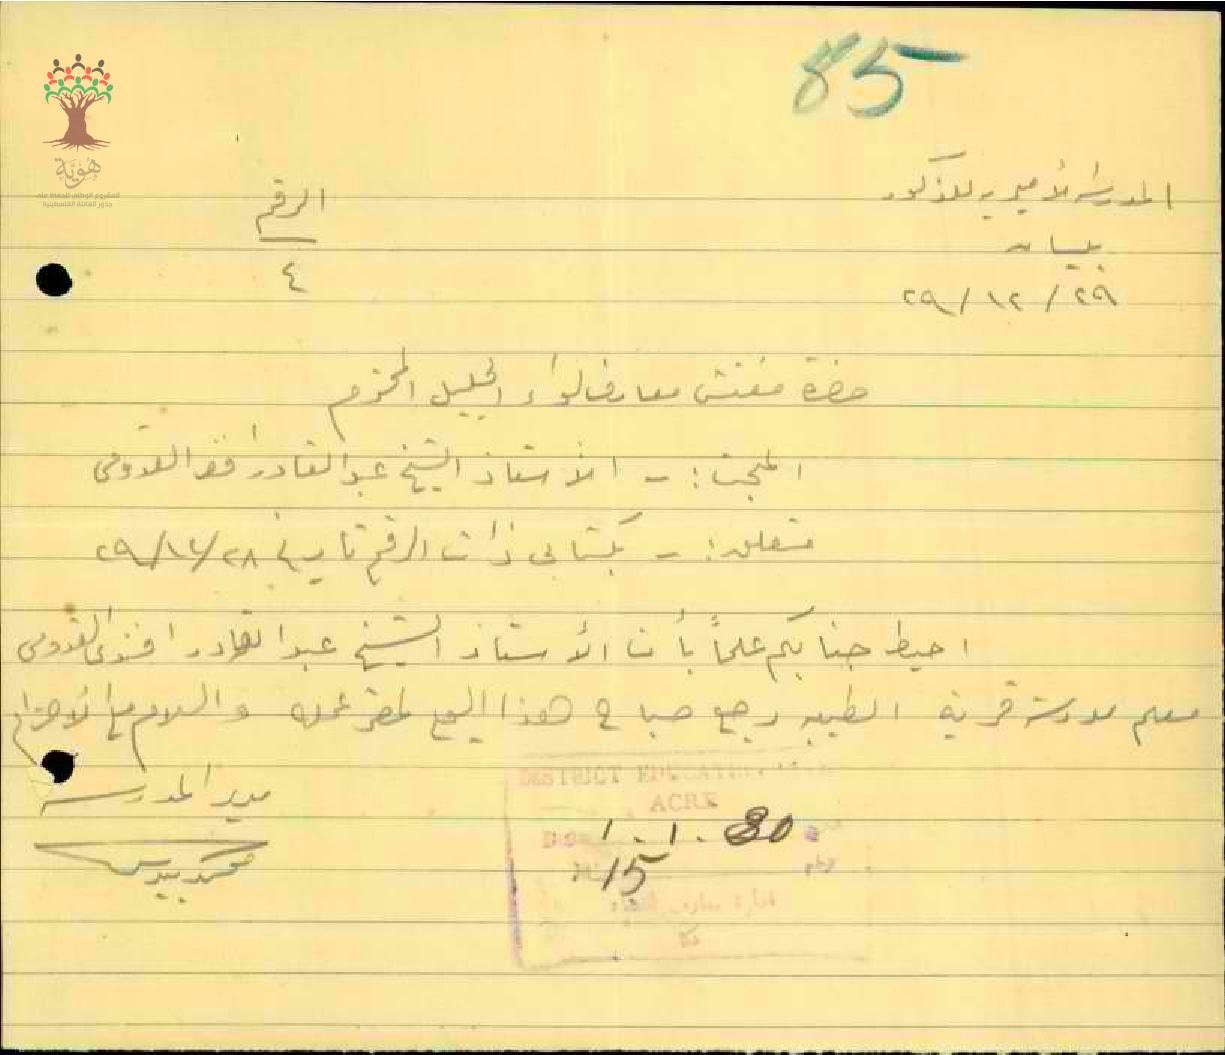 85
هُوِيَّة
المشروع الوطني للحفاظ على
جذور العائلة الفلسطينية
المدرسة الأميرية للذكور
ببيسان
٢٩/١٢/٢٩
الرقم
٤
حضرة مفتش معارف لواء الجليل المحترم
المبحث :- الأستاذ الشيخ عبد القادر افندي القدومي
متعلق :- بكتابي ذات الرقم تاريخ ٢٨/١٢/٢٩
احيط جنابكم علماً بأن الأستاذ الشيخ عبد القادر افندي القدومي
معلم مدرسة قرية الطيبه رجع صباح هذا اليوم لمقر عمله والسلام مع الاحترام
مدير المدرسه
DISTRICT EDUCATION
ACRE
1.1.30
15
ادارة معارف
عكا